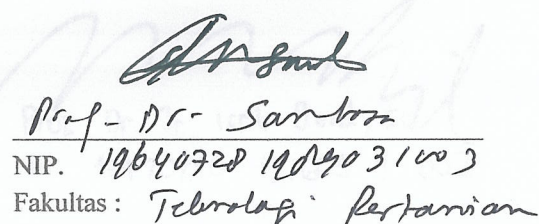 Prof - Dr - Santosa
NIP. 19640728 198903 1 003
Fakultas : Teknologi Pertanian